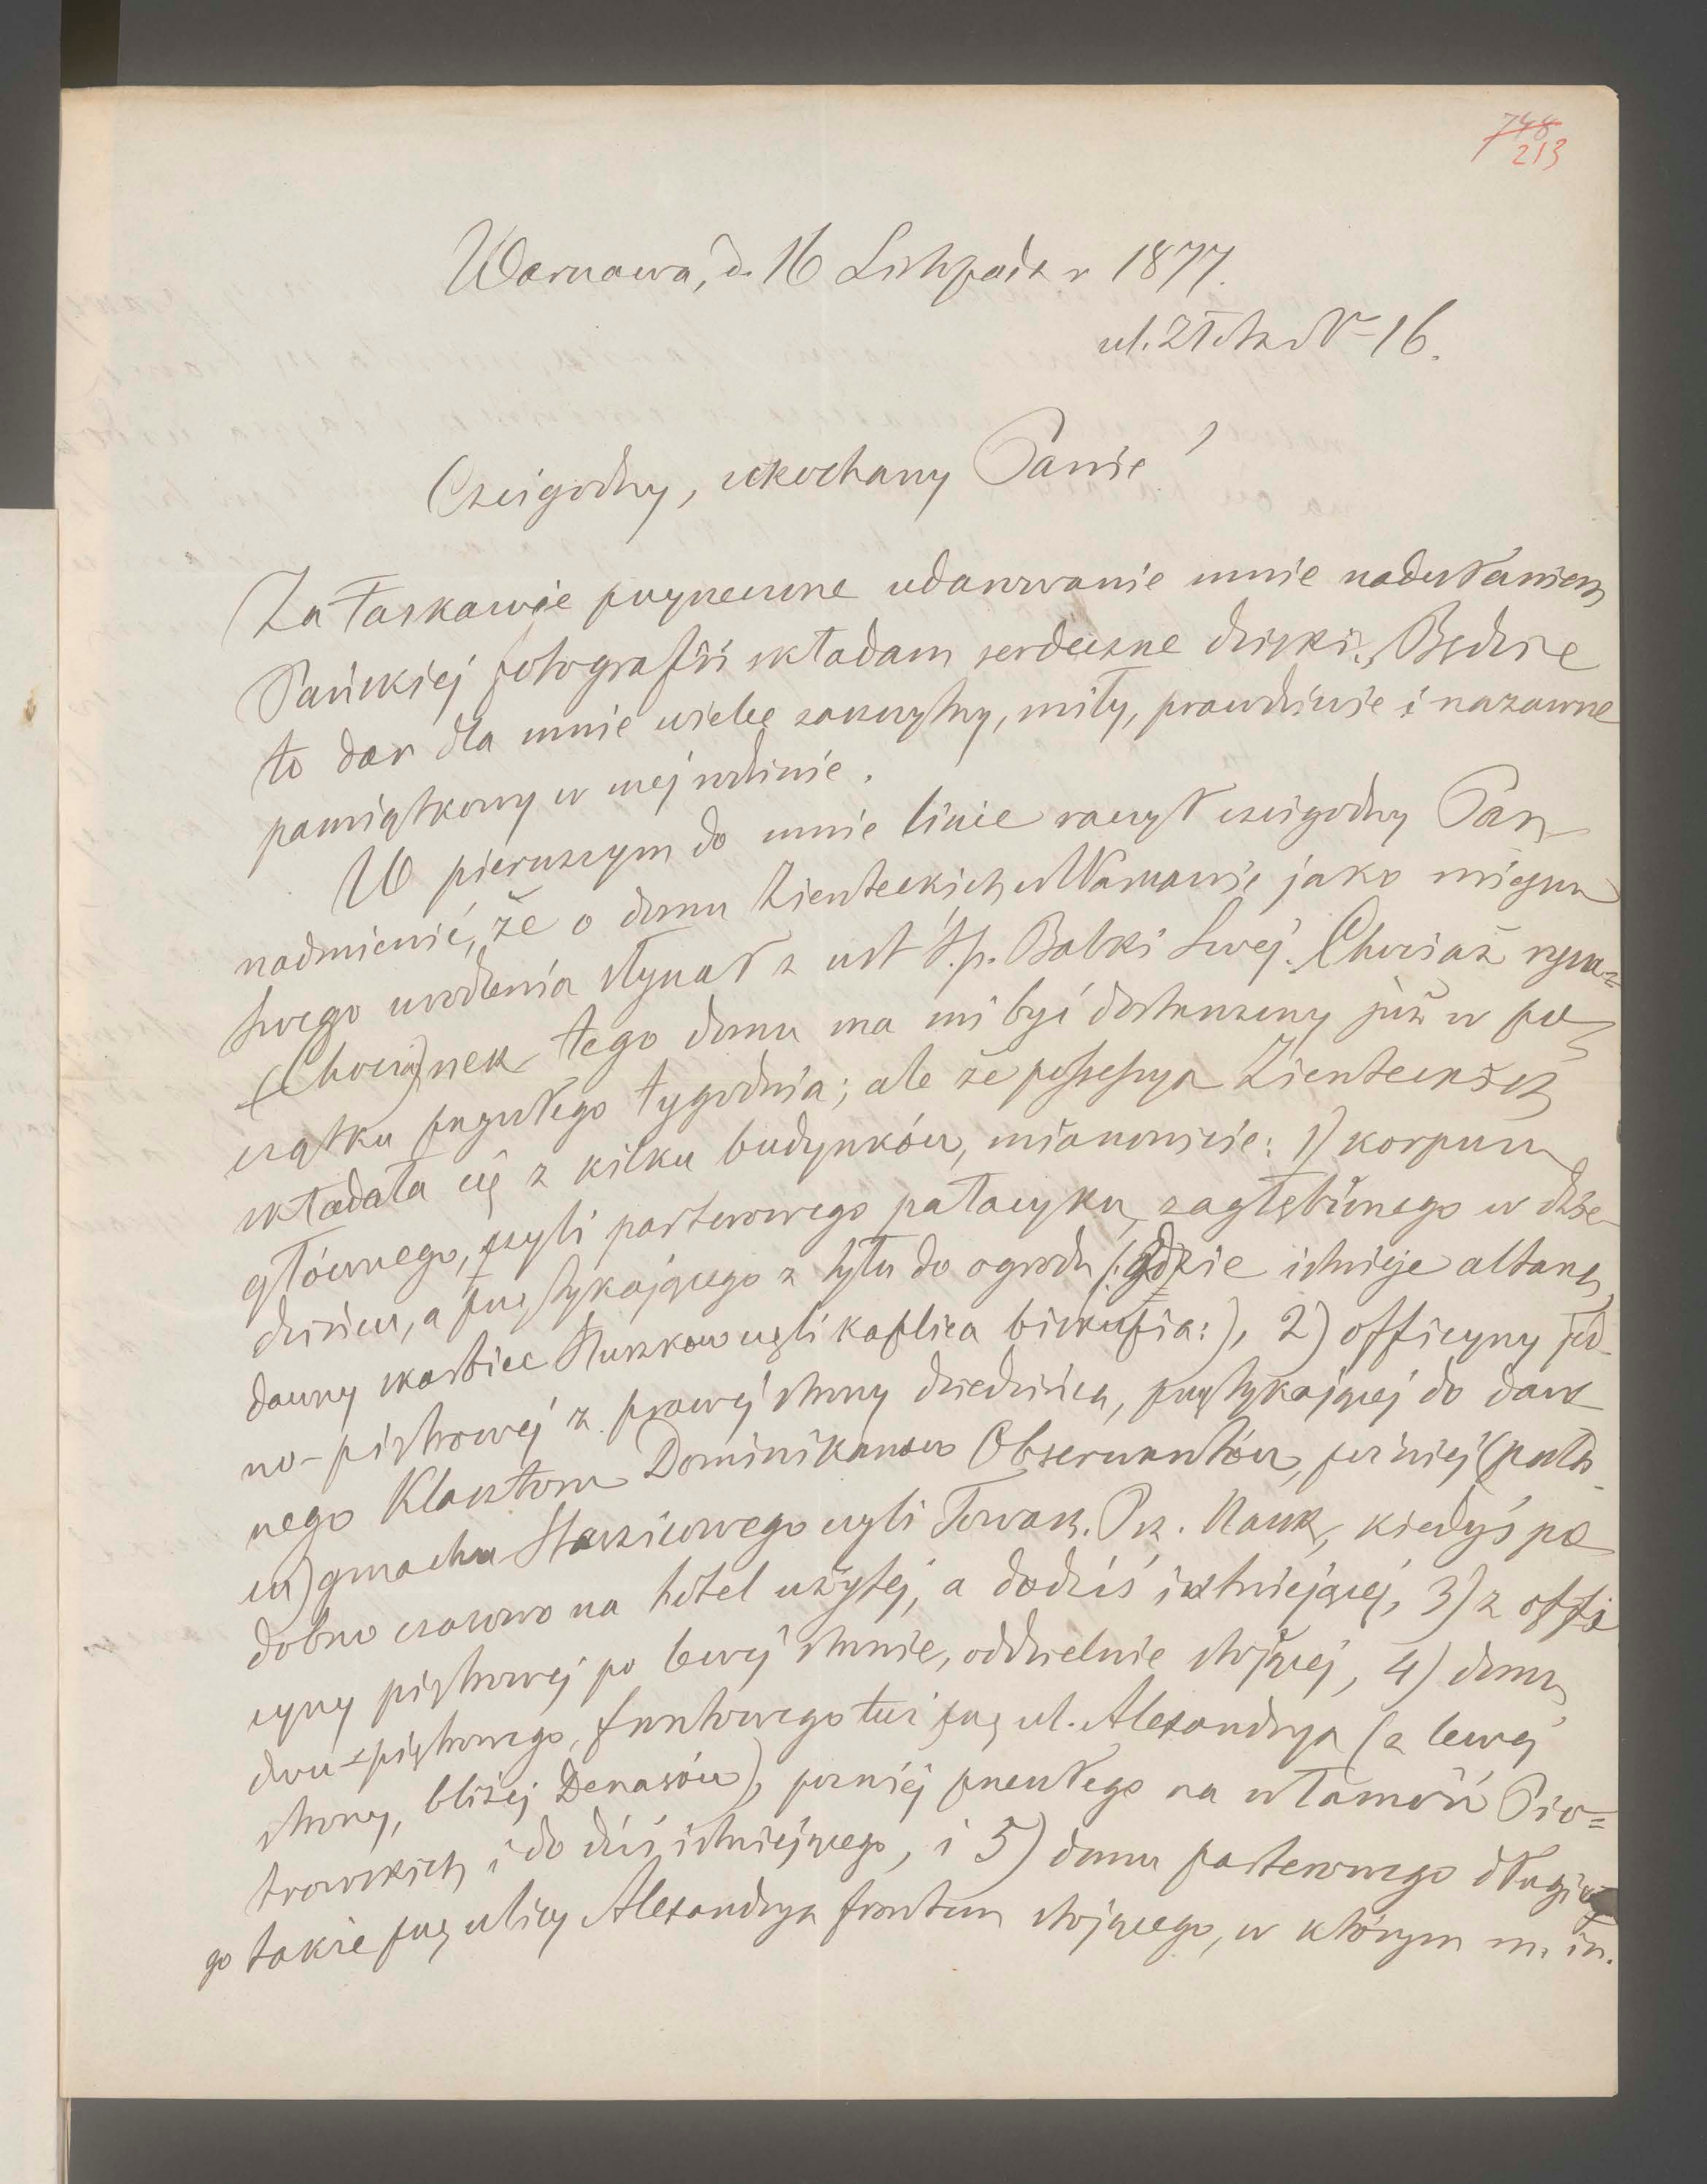 748
213
Warszawa, d. 16 Listopada r 1877.
ul. Złota N 16.
Czcigodny, ukochany Panie!
Za łaskawie przyrzeczone udarowanie mnie nadesłaniem
Pańskiej fotografii składam serdeczne dzięki. Będzie
to dar dla mnie wielce zaszczytny, miły, prawdziwie i nazawsze
pamiątkowy w mej rodzinie.
W pierwszym do mnie liście raczył czcigodny Pan
nadmienić, że o domu Zienteckich w Warszawie, jako miejscu
swego urodzenia słyszał z ust ś.p. Babki Swej. Chociaż rysu=
(Chociaż) nek tego domu ma mi być dostarczony już w po
czątku przyszłego tygodnia; ale że possessya Zienteckich
składała się z kilku budynków, mianowicie: 1) korpusu
głównego, czyli parterowego pałacyku, zagłębionego w dzie-
dzińcu, a przytykającego z tyłu do ogrodu (:gdzie istnieje altana,
dawny skarbiec Kuszkow czyli kaplica biskupia:), 2) officyny jed-
no-piętrowej z prawej strony dziedzińca, przytykającej do daw
nego Klasztoru Dominikanow Obserwantów, poźniej (pała-
cu) gmachu Staszicowego czyli Towarz. Prz. Nauk, kiedyś po
dobno czasowo na hotel użytej, a dodziś istniejącej, 3) z offi
cyny piętrowej po lewej stronie, oddzielnie stojącej, 4) domu
dwu-piętrowego, frontowego tuż przy ul. Alexandrya (z lewej
strony, bliżej Denasów), poźniej przeszłego na własność Pio=
trowskich i do dziś istniejącego, i 5) domu parterowego długie
go także przy ulicy Alexandrya frontem stojącego, w którym m. in.